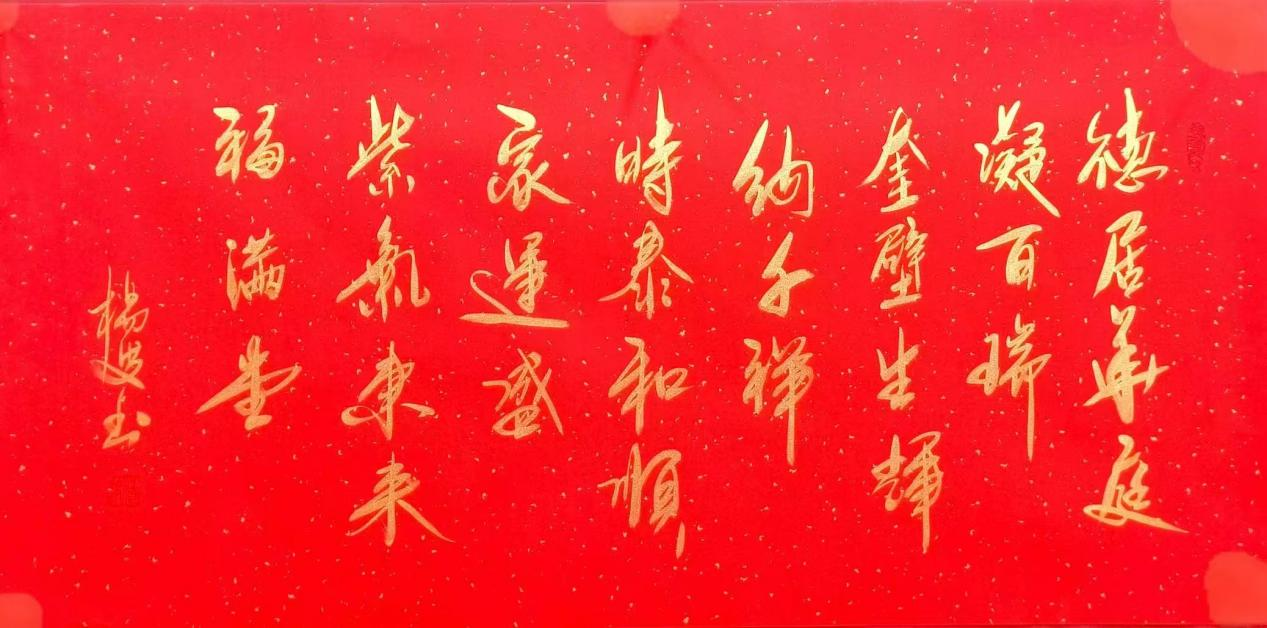 德居華庭
凝百瑞
奎壁生輝
納千祥
時泰和順
家運盛
紫氣東来
福滿堂